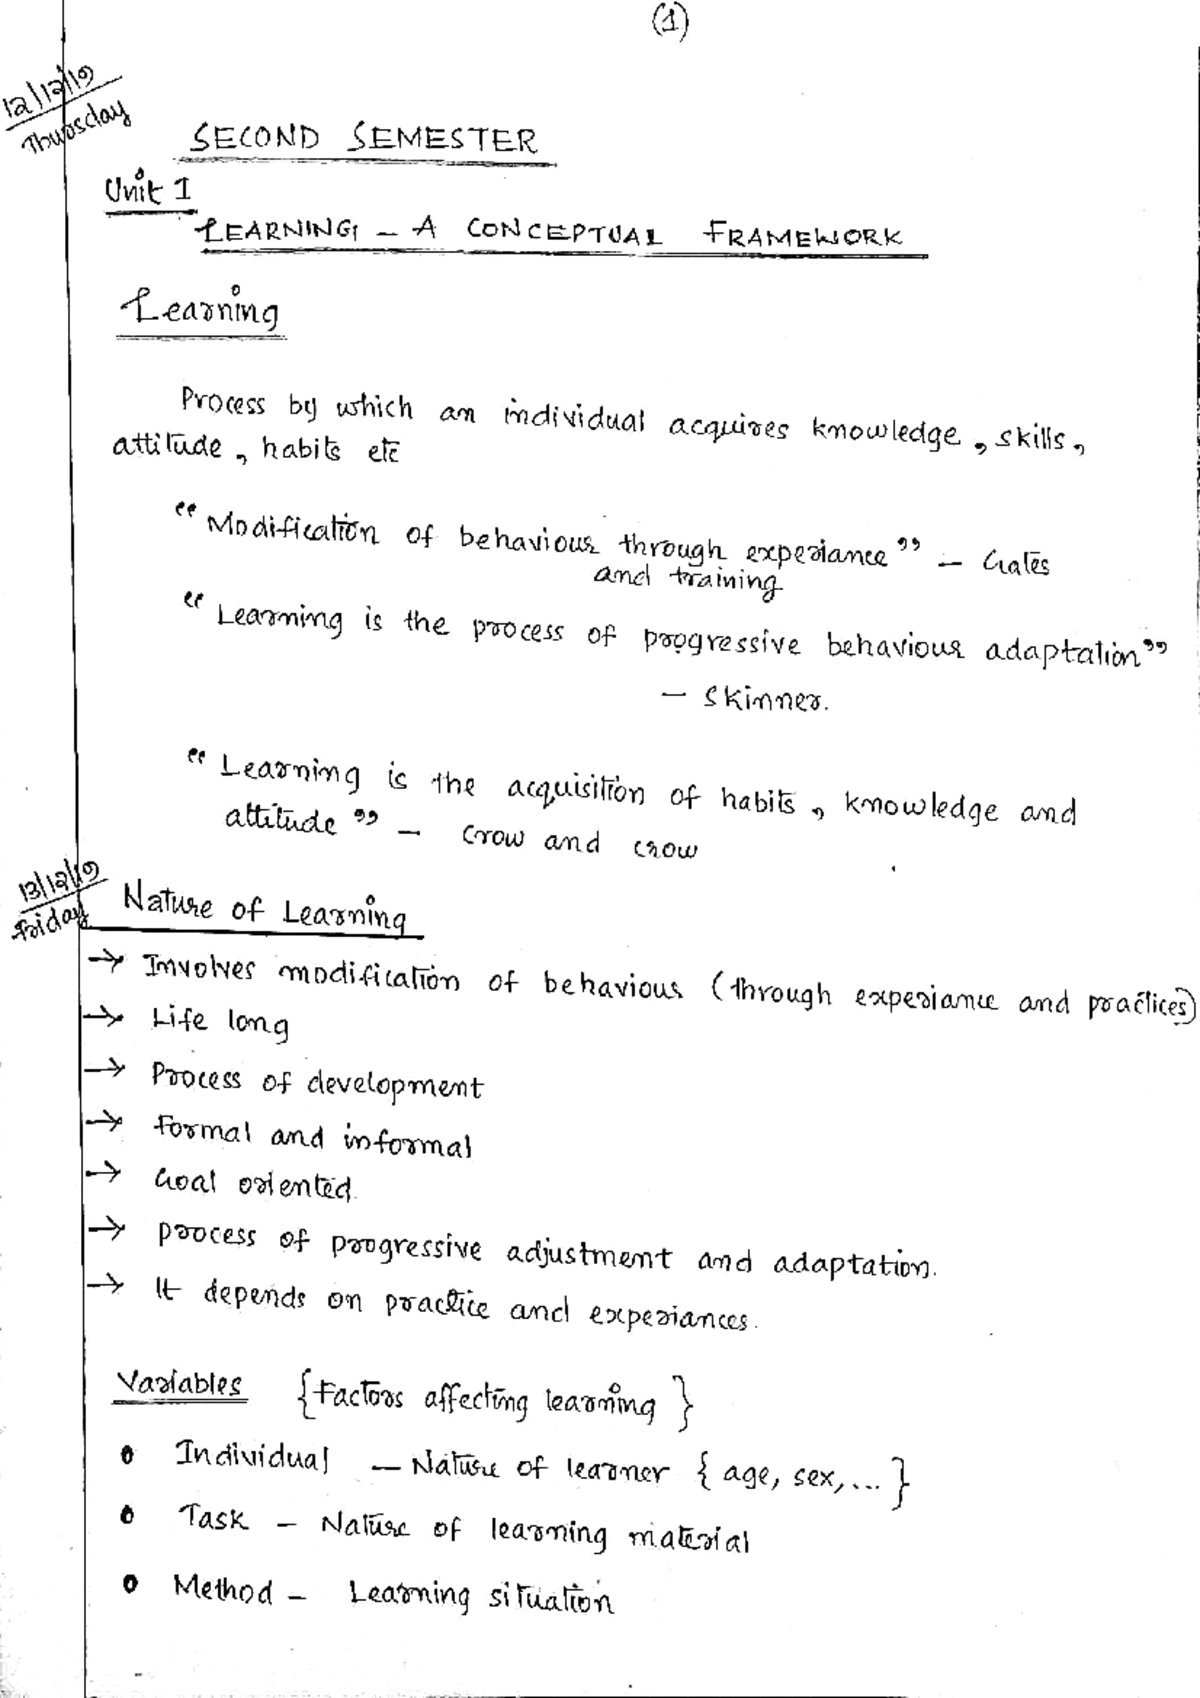 (1)
12/12/19
Thursday
SECOND SEMESTER
Unit 1
LEARNING - A CONCEPTUAL FRAMEWORK
Learning
Process by which an individual acquires knowledge, skills,
attitude, habits etc
"Modification of behaviour through experiance" - Gates
and training
"Learning is the process of progressive behaviour adaptation"
- Skinner.
"Learning is the acquisition of habits, knowledge and
attitude" - Crow and crow
13/12/19
friday
Nature of Learning
→ Involves modification of behaviour (through experiance and practices)
→ Life long
→ Process of development
→ Formal and informal
→ Goal oriented.
→ process of progressive adjustment and adaptation.
→ It depends on practice and experiances.
Variables {Factors affecting learning}
• Individual - Nature of learner {age, sex,...}
• Task - Nature of learning material
• Method - Learning situation